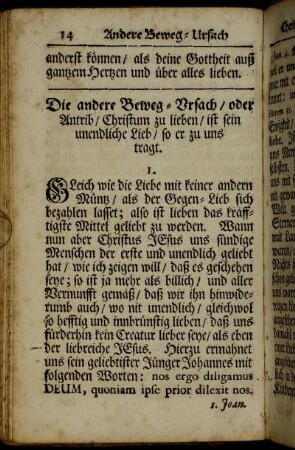 14 Andere Beweg-Ursach
anderst können/ als deine Gottheit auß
gantzem Hertzen und über alles lieben.
Die andere Beweg-Vrsach/ oder
Antrib/ Christum zu lieben/ ist sein
unendliche Lieb/ so er zu uns
tragt.
1.
GLeich wie die Liebe mit keiner andern
Müntz/ als der Gegen-Lieb sich
bezahlen lasset; also ist lieben das kräff-
tigste Mittel geliebt zu werden. Wann
nun aber Christus JEsus uns sündige
Menschen der erste und unendlich geliebt
hat/ wie ich zeigen will/ daß es geschehen
seye; so ist ja mehr als billich/ und aller
Vernunfft gemäß/ daß wir ihn hinwide-
rumb auch/ wo nit unendlich/ gleichwol
so hefftig und innbrünstig lieben/ daß uns
fürderhin kein Creatur lieber seye/ als eben
der liebreiche JEsus. Hierzu ermahnet
uns sein geliebtister Jünger Johannes mit
folgenden Worten: nos ergo diligamus
DEUM, quoniam ipse prior dilexit nos.
1. Joan.